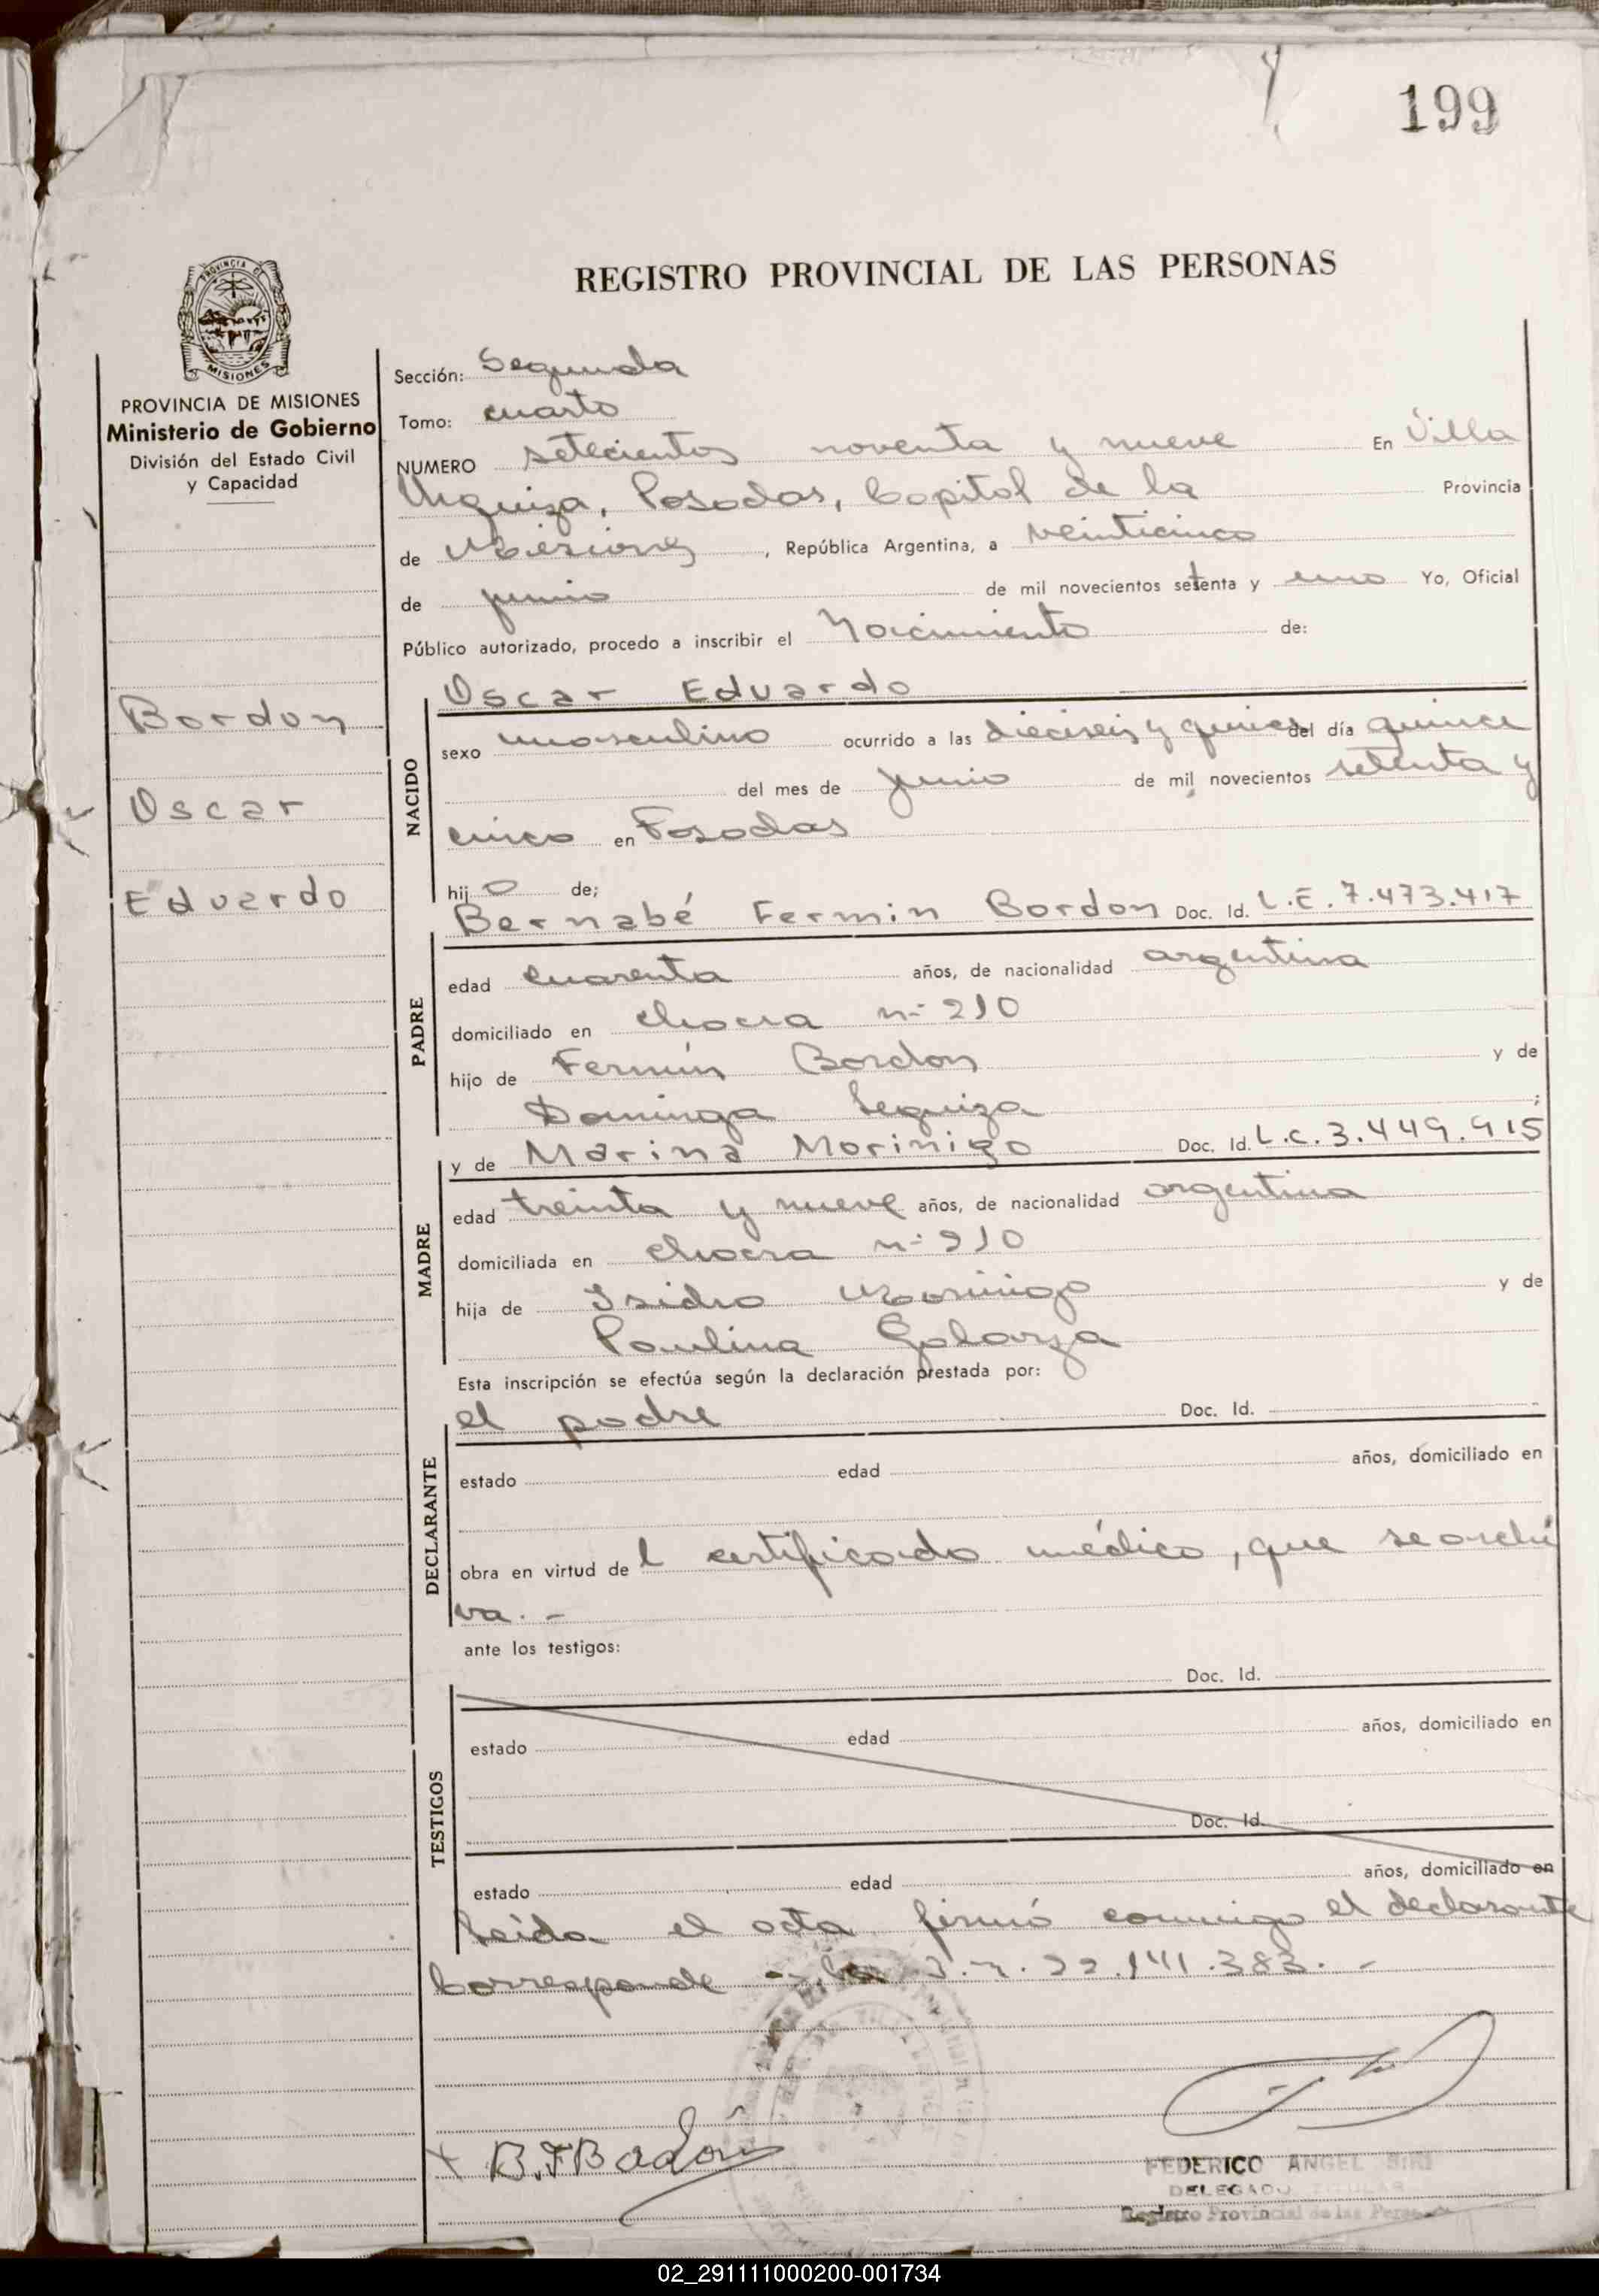 199
REGISTRO PROVINCIAL DE LAS PERSONAS
PROVINCIA DE MISIONES
PROVINCIA DE MISIONES
Ministerio de Gobierno
División del Estado Civil
y Capacidad
Bordon
Oscar
Eduardo
Sección: Segunda
Tomo: cuarto
NUMERO setecientos noventa y nueve En Villa
Urquiza, Posadas, Capital de la Provincia
de Misiones, República Argentina, a veinticinco
de junio de mil novecientos setenta y uno Yo, Oficial
Público autorizado, procedo a inscribir el Nacimiento de:
NACIDO
Oscar Eduardo
sexo masculino ocurrido a las dieciseis y quince del día quince
del mes de junio de mil novecientos setenta y
cinco en Posadas
hijo de;
PADRE
Bernabé Fermin Bordon Doc. Id. L.E. 7.473.417
edad cuarenta años, de nacionalidad argentina
domiciliado en chacra nº 210
hijo de Fermín Bordon y de
Dominga Leguiza;
MADRE
y de Marina Morinigo Doc. Id. L.C. 3.449.915
edad treinta y nueve años, de nacionalidad argentina
domiciliada en chacra nº 210
hija de Isidro Morinigo y de
Paulina Galarza
Esta inscripción se efectúa según la declaración prestada por:
DECLARANTE
el padre Doc. Id.
estado edad años, domiciliado en
obra en virtud del certificado médico, que se archi
va. -
ante los testigos:
TESTIGOS
Doc. Id.
estado edad años, domiciliado en
Doc. Id.
estado edad años, domiciliado en
Leida el acta firmó conmigo el declarante
Corresponde 22.141.383. -
B.F Bordón
FEDERICO ANGEL
DELEGADO TITULAR
Registro Provincial de las Personas
02_291111000200-001734